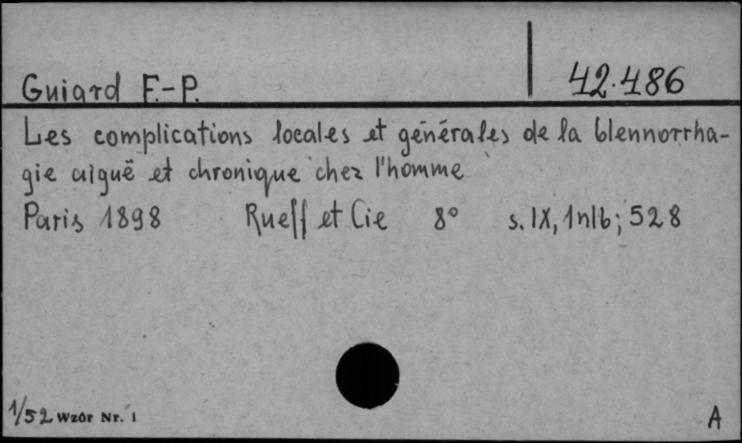 Guiard F.-P. 42.486
Les complications locales et générales de la blennorrha-
gie aiguë et chronique chez l'homme
Paris 1898 Rueff et Cie 8° s. IX, 1nlb; 528
1/52 Wzór Nr. 1 A